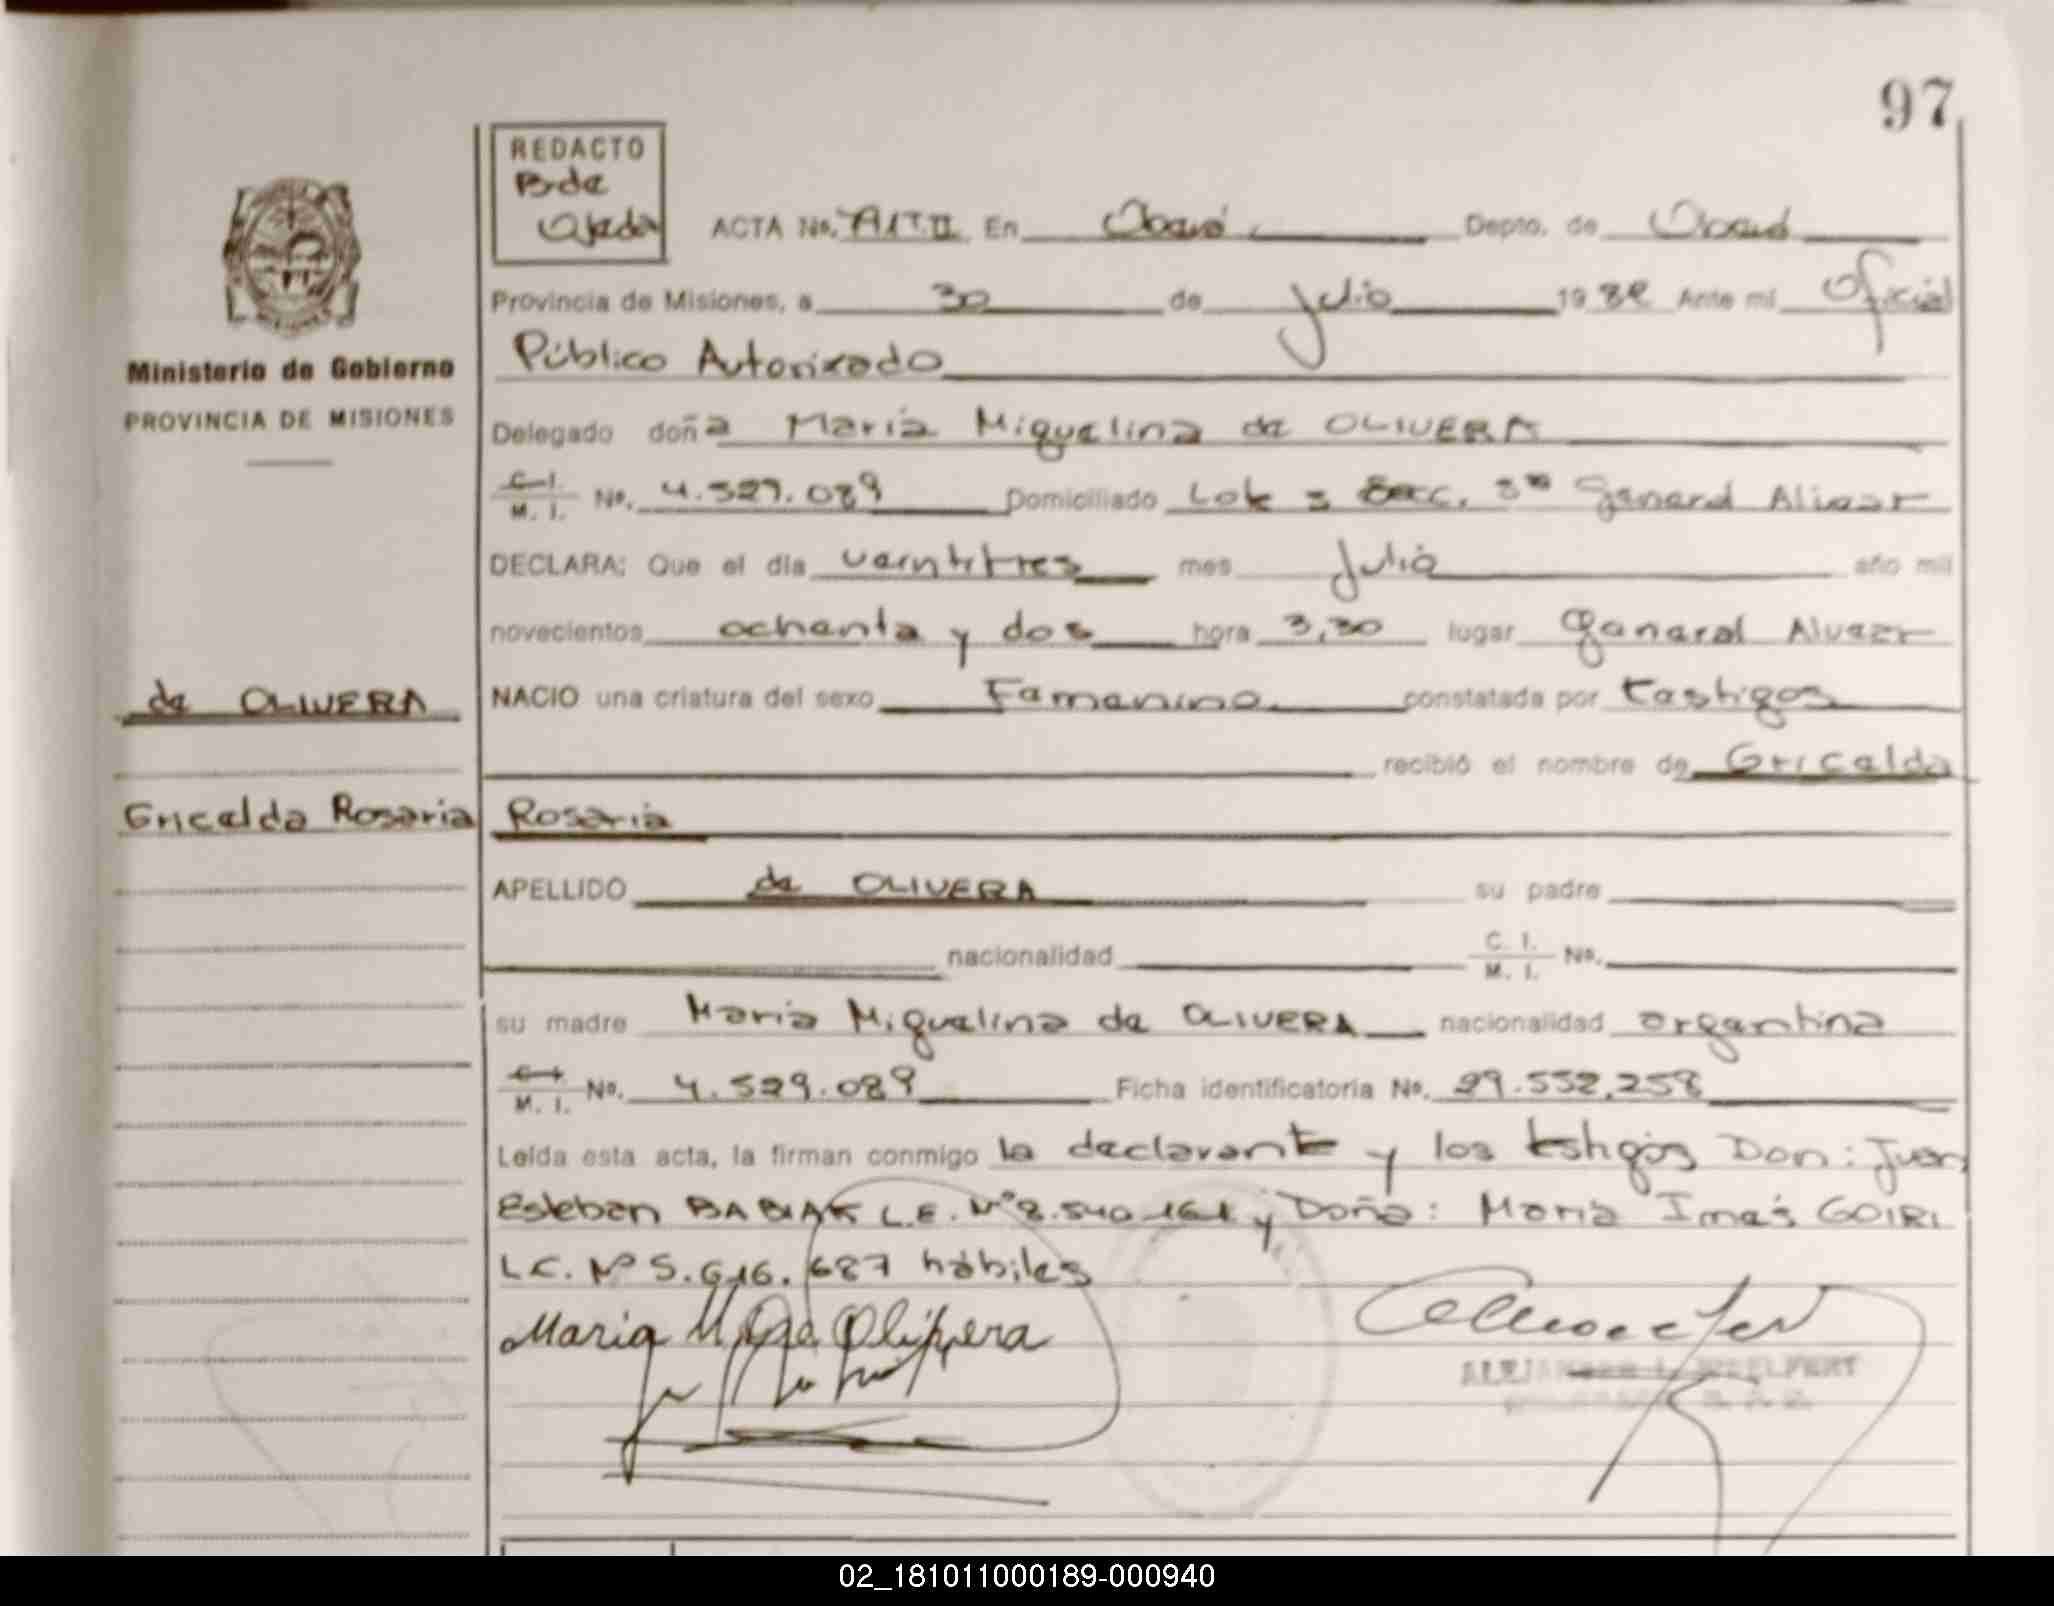 97
REDACTO
B. de
Ojeda
ACTA No. En Oberá Depto. de Oberá
Provincia de Misiones, a 30 de Julio 1982 Ante mí Oficial
Público Autorizado
Ministerio de Gobierno
PROVINCIA DE MISIONES
Delegado doña Maria Miguelina de OLIVERA
C. I. M. I. No. 4.529.089 Domiciliado Lote 3 Secc. 3ª General Alvear
DECLARA: Que el día veintitres mes Julio año mil
novecientos ochenta y dos hora 3,30 lugar General Alvear
de OLIVERA
NACIO una criatura del sexo Femenino constatada por testigos
recibió el nombre de Gricelda
Gricelda Rosaria
Rosaria
APELLIDO de OLIVERA su padre
nacionalidad C. I. M. I. No.
su madre Maria Miguelina de OLIVERA nacionalidad argentina
C. I. M. I. No. 4.529.089 Ficha identificatoria No. 29.552.258
Leída esta acta, la firman conmigo la declarante y los testigos Don: Juan
Esteban BABIAK L.E. Nº 8.540.161 y Doña: Maria Ines GOIRI
L.C. Nº 5.616.687 hábiles
Maria M. de Olivera
02_181011000189-000940